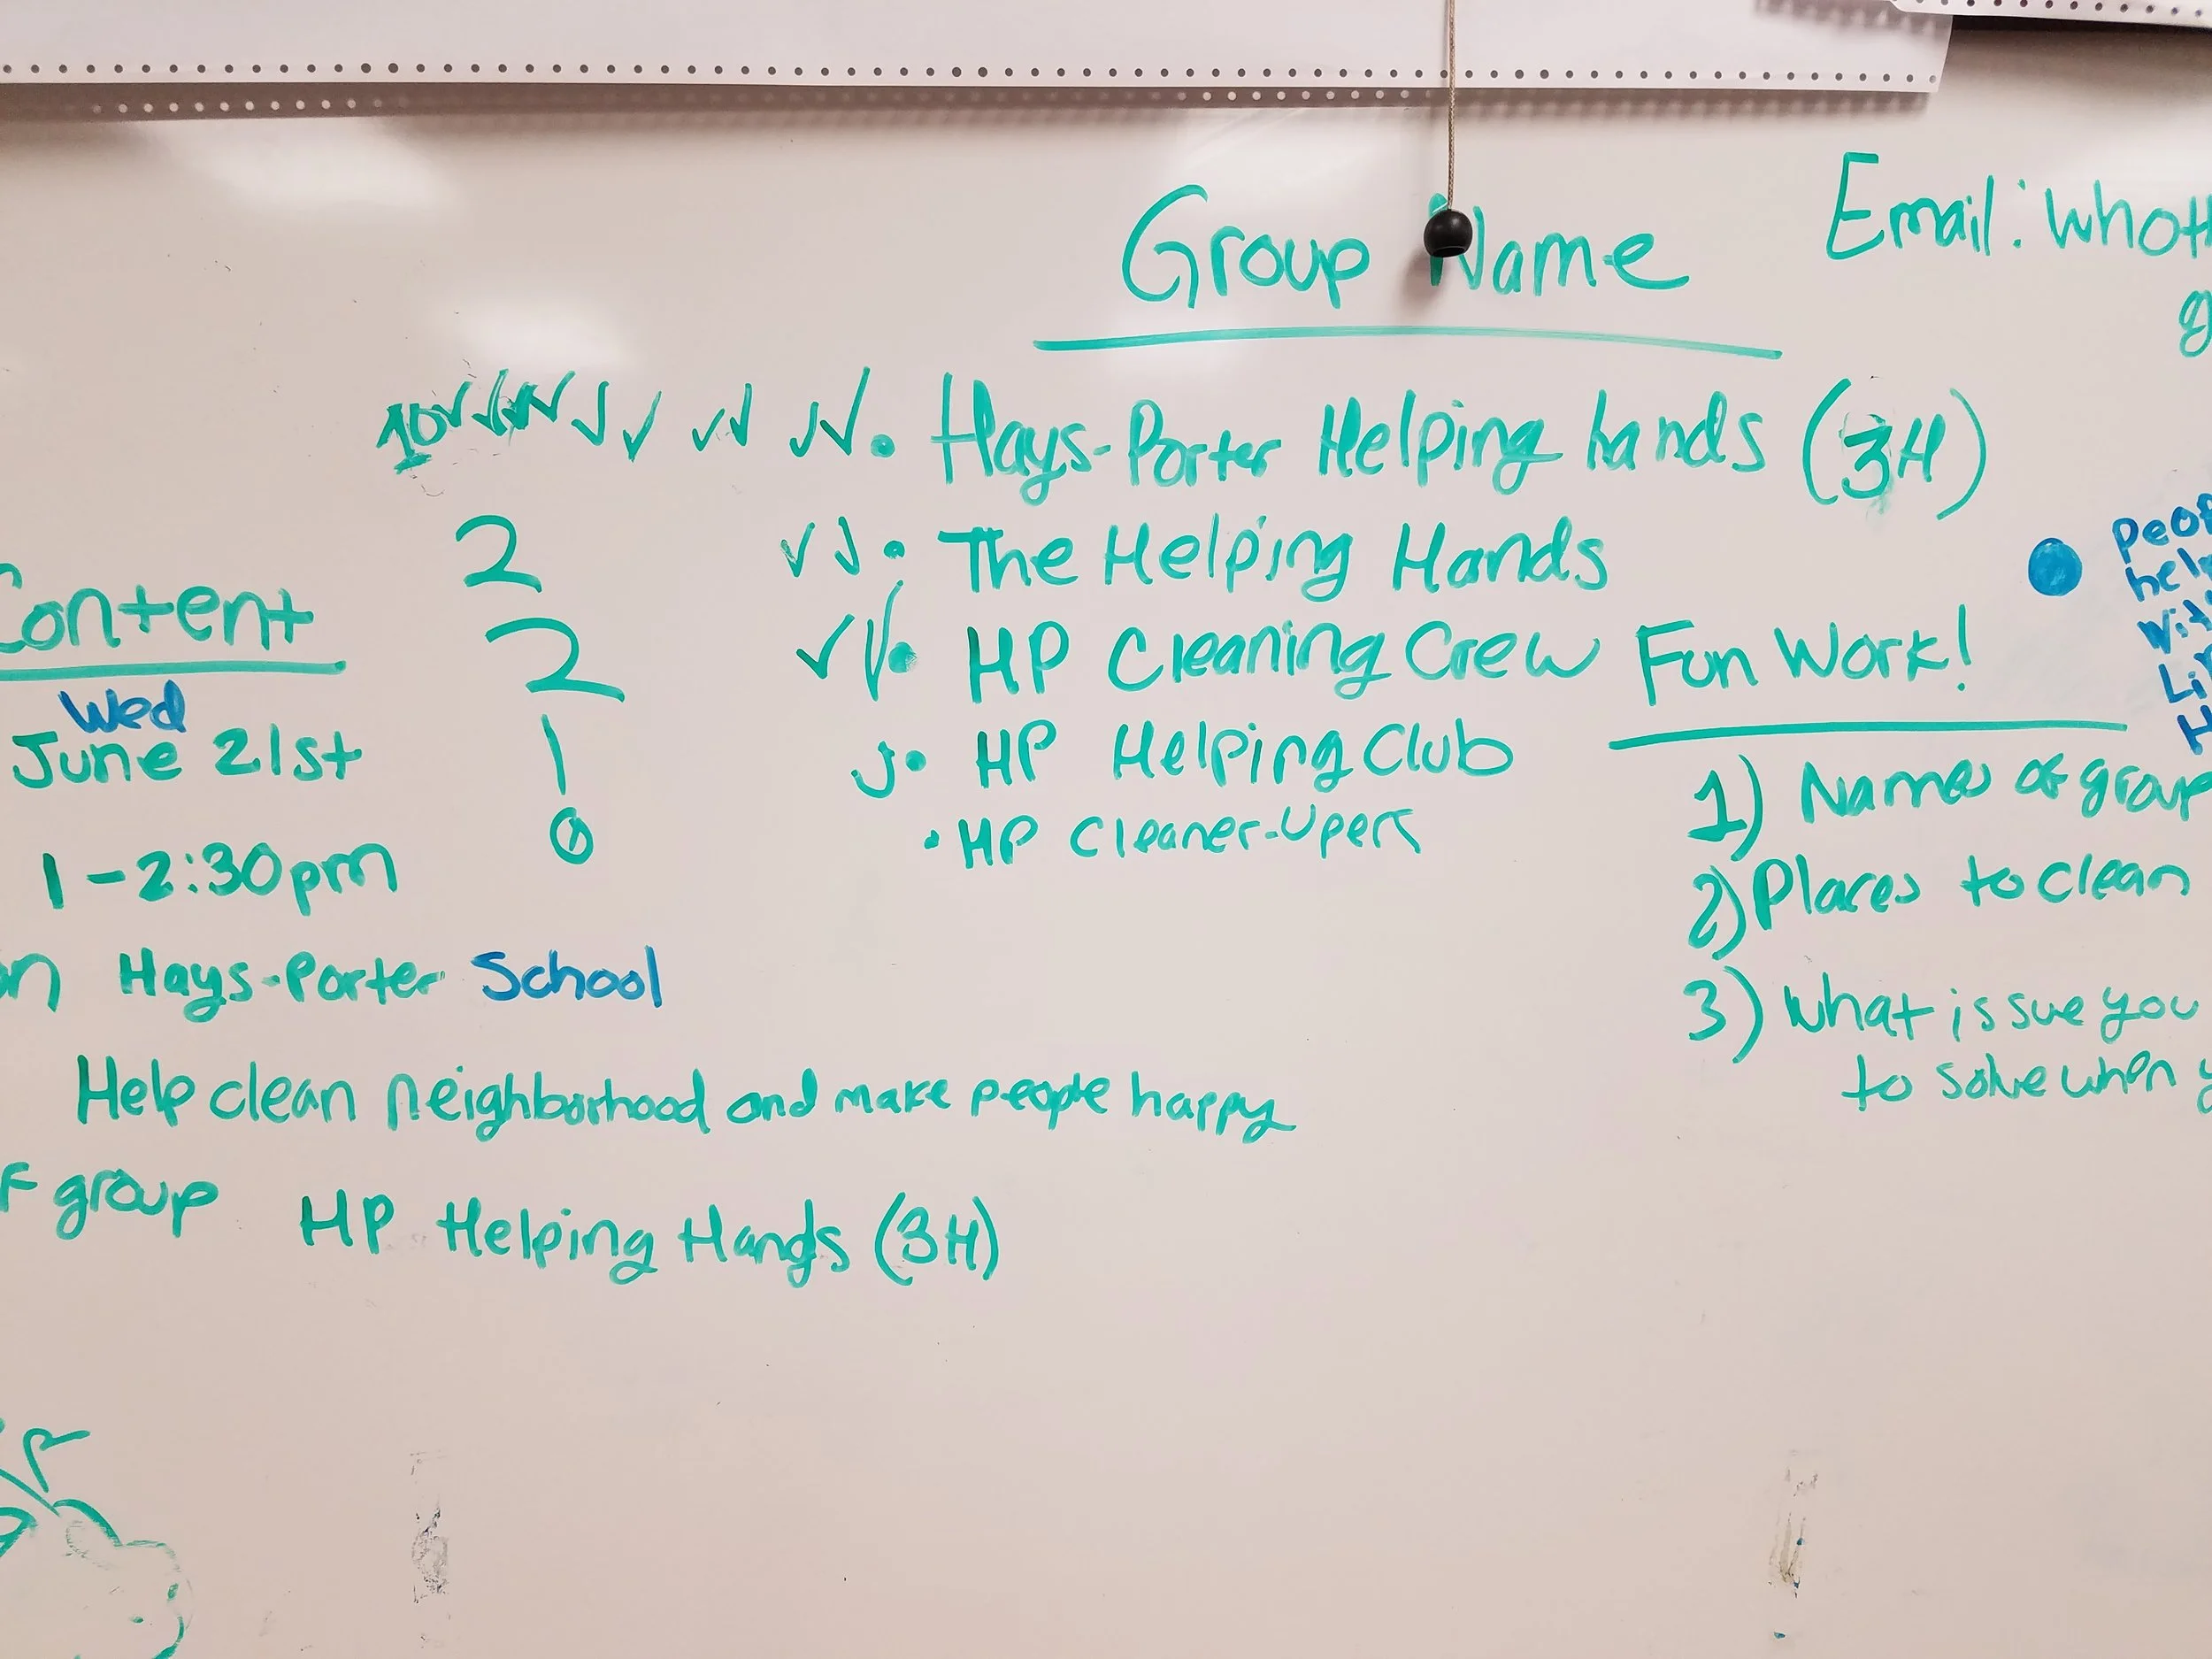 Group Name
Email: Whott
10 ✓✓✓✓✓✓✓✓✓✓ • Hays-Porter Helping hands (3H)
2 ✓✓ • The Helping Hands
2 ✓✓ • HP Cleaning Crew
1 ✓ • HP Helping Club
0 • HP Cleaner-Upers
Content
Wed
June 21st
1-2:30pm
Hays-Porter School
Help clean neighborhood and make people happy
F group HP Helping Hands (3H)
Fun Work!
1) Names of group
2) Places to clean
3) What issue you
to solve when y